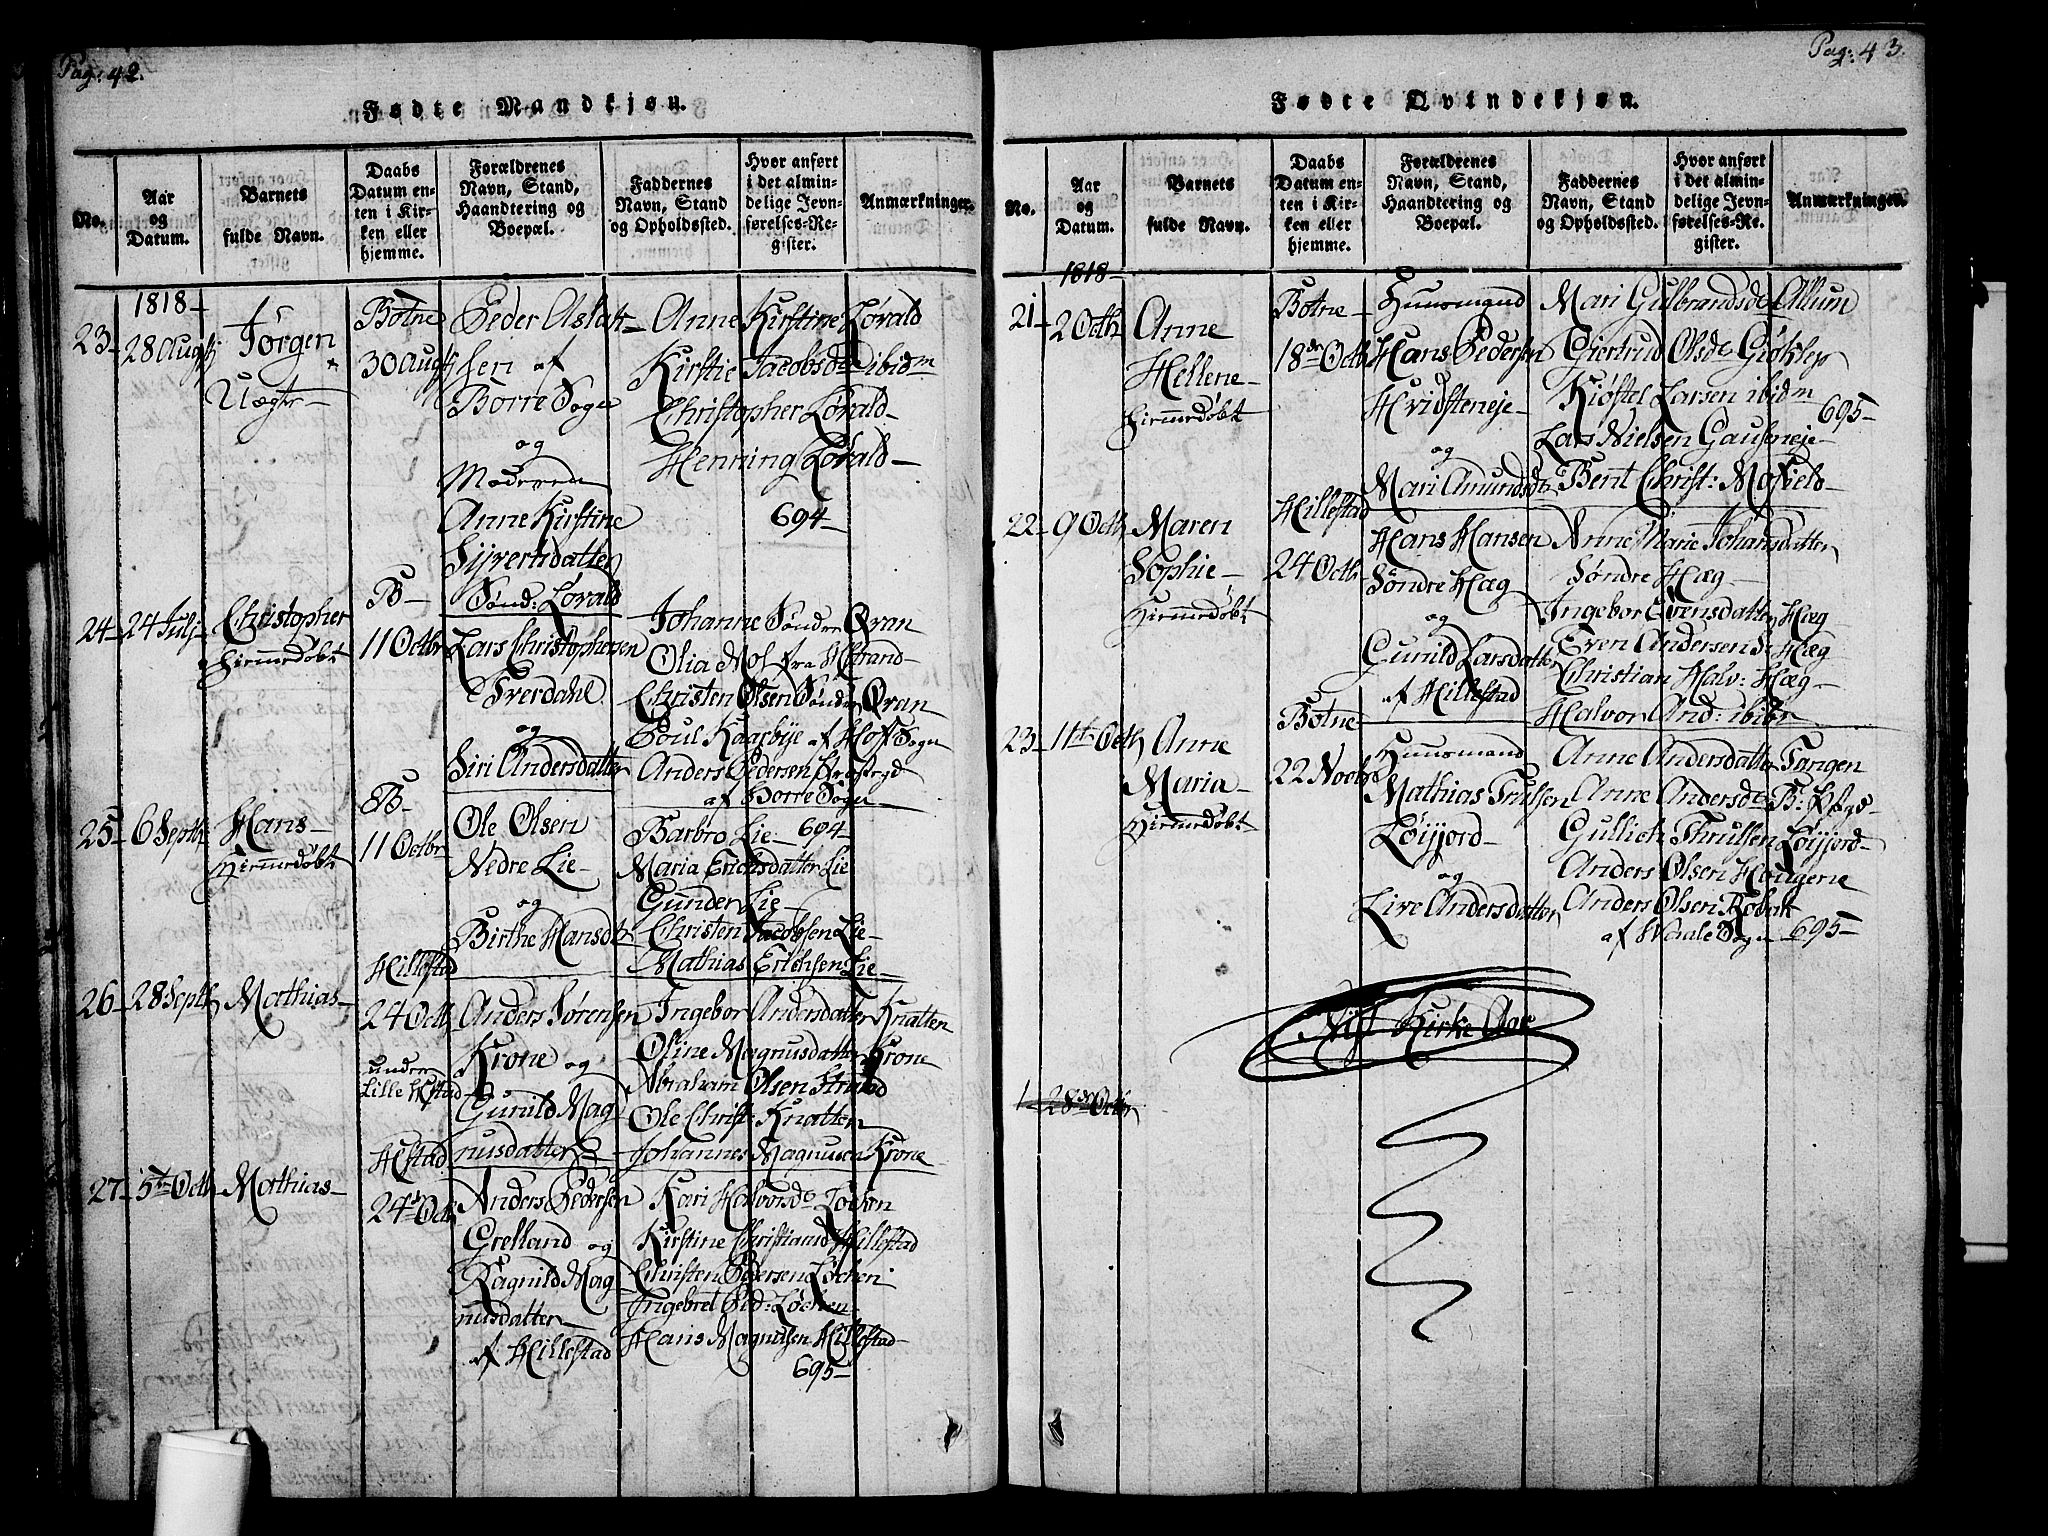 Pag: 42.
Fødte Mandkjøn.
No.
Aar
og
Datum.
Barnets
fulde Navn.
Daabs
Datum en-
ten i Kir-
ken eller
hjemme.
Forældrenes
Navn, Stand,
Haandtering og
Boepæl.
Faddernes
Navn, Stand
og Opholdssted.
Hvor anført
i det almin-
delige Jevn-
førelses-Re-
gister.
Anmærkninger.
1818
23 28 Augtj
Jörgen
Uægte
Botne
30 Augtj
Peder Aslak-
sen af
Borre Sogn
og
Moderen
Anne Kirstine
Sijvertsdatter
Sönd: Lörald
Anne Kirstine Lörald
Kirstie Jacobsd ibidm
Christopher Lörald
Henning Lörald
694
24 24 Julj
Christopher
Hiemmedøbt
B
11 Octbr
Lars Christophersen
Sverdahl
og
Siri Andersdatter
Johanne Söndre Qvan
Olia Mos fra Strand
Christen Olsen Söndr Qvan
Poul Kaarbye af Hof Sogn
Anders Pedersen
af Borre Sogn
694
25 6 Septb
Hans
Hiemmedøbt
B
11 Octbr
Ole Olsen
Nedre Lie
og
Birthe Hansdt
Barbro Lie
Maria Erichsdatter Lie
Gunder Lie
Christen Jacobsen Lie
Mathias Erichsen Lie
26 28 Septb
Mathias
Hillestad
24 Octb
under
Anders Sörensen
Krone og
Gunild Mag
nusdatter
Ingebor Andersdatter Knatten
Oline Magnusdatter Krone
Abraham Olsen Strand
Ole Christ: Knatten
Johannes Magnusen Krone
27 5te Octb
Mathias
Hstad
24de Octb
Anders Pedersen
Grelland og
Ragnild Mag
nusdatter
af Hillestad
Kari Halvorsd Løchen
Kirstine Christiansd Hillestad
Christen Pedersen Løchen
Ingebret Ped: Løchen
Hans Magnusen Hillestad
695
Pag: 43.
Fødte Qvindekjøn.
No.
Aar
og
Datum.
Barnets
fulde Navn.
Daabs
Datum en-
ten i Kir-
ken eller
hjemme.
Forældrenes
Navn, Stand,
Haandtering og
Boepæl.
Faddernes
Navn, Stand
og Opholdssted.
Hvor anført
i det almin-
delige Jevn-
førelses-Re-
gister.
Anmærkninger.
1818
21 2 Octb
Anne
Hellene
Hiemmedøbt
Botne
18de Octb
Huusmand
Hans Pedersen
Hvidsteneje
og
Mari Amundsdt
Mari Gulbrandsd Allum
Giertrud Olsd
Kiøstel Larsen ibidm
695
Lars Nielsen Gauseneje
Bent Christ:
22 9 Octb
Maren
Sophie
Hiemmedøbt
Hillestad
24 Octb
Hans Hansen
Söndre Hæg
og
Gunild Larsdatter
af Hillestad
Anne Marie Johansdatter
Søndre Hæg
Ingebor Evensdatter Hæg
Even Andersen S: Hæg
Christian Halv: Hæg
Halvor And: ibidm
23 11te Octb
Anne
Maria
Hiemmedøbt
Botne
22 Novb
Huusmand
Mathias Trulsen
Løijjord
og
Live Andersdatter
Anne Andersdatter Tangen
Anne Andersd B:
Gullich Thrulsen Løijjord
Anders Olsen Haugene
Anders Olsen
af Waale Sogn 695
Nijt Kirke Aar
1 28de Octb